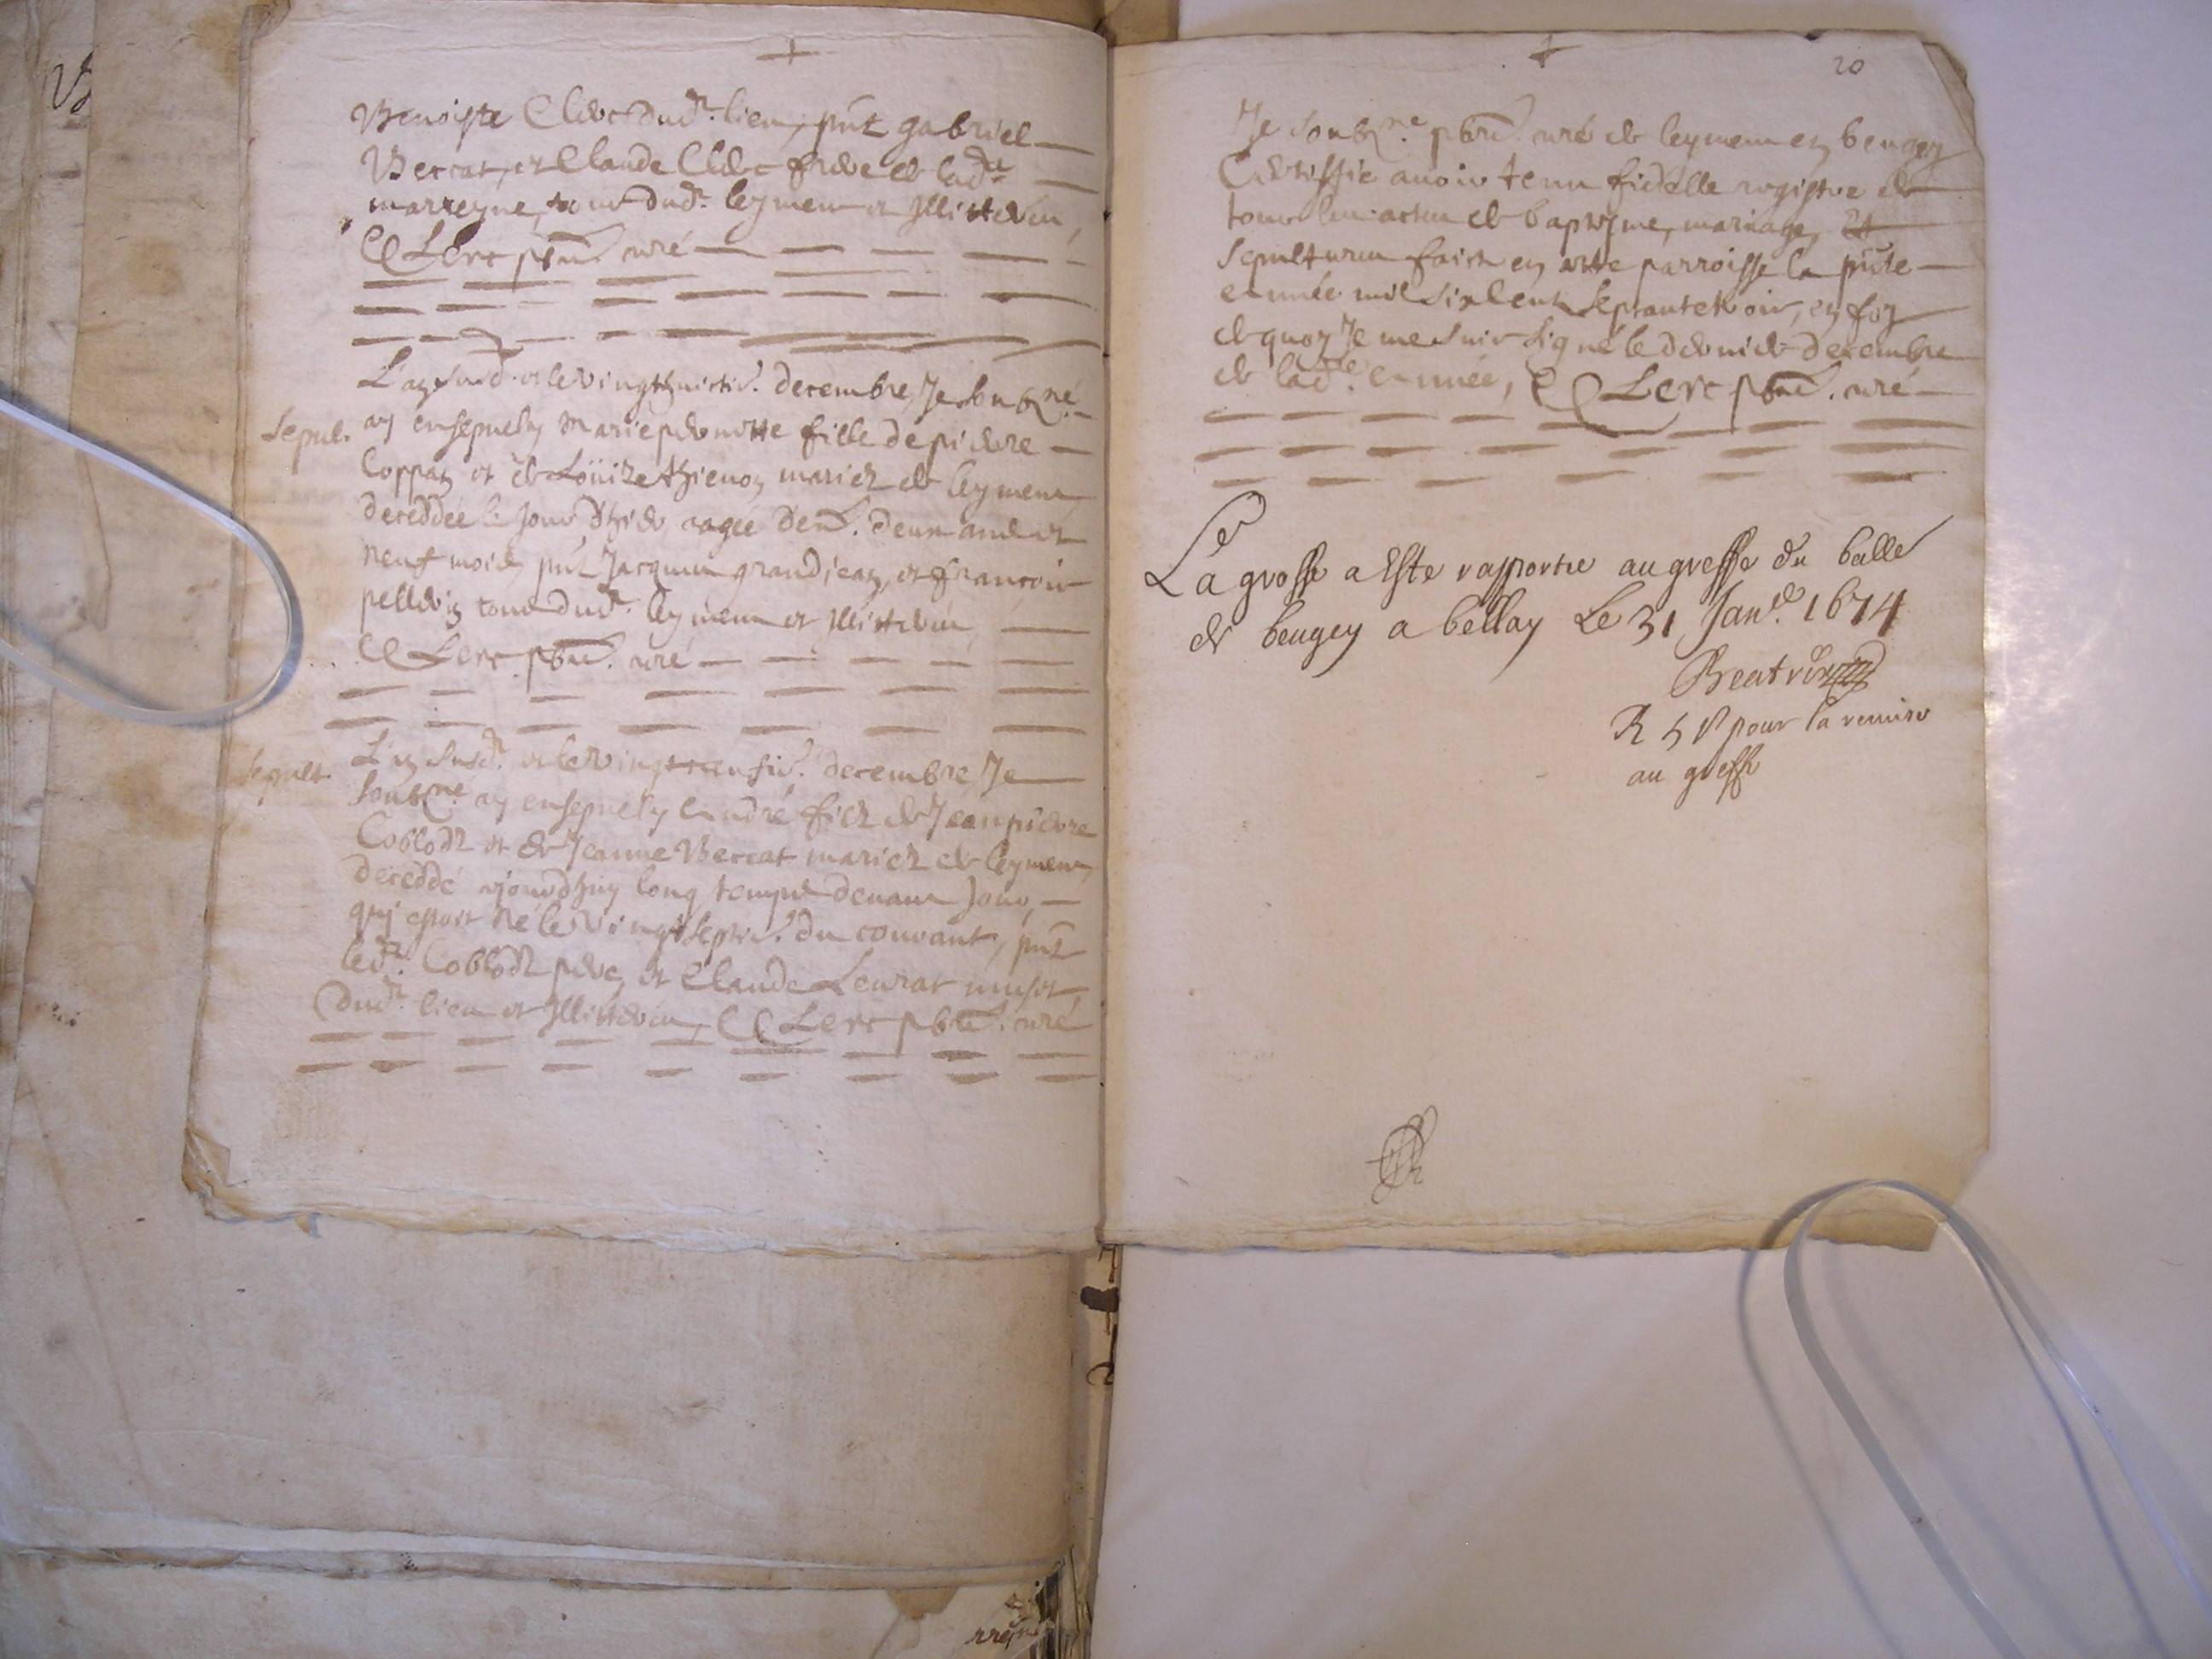 Benoiste Clerc dud.t lieu, pnt gabriel
Berrat, et Claude Clerc frere de lad.te
marreyne, tous dud.t leymens et Illitterés,
C Clerc pbre. curé
L'an susd. et le vingthuictie. decembre, Je soubz.né
Sepul. ay ensepuely Marie pernette fille de pierre
Coppaz et de Loüize thienoz mariez de leymens
deceddée le Jour d'hier, aagée d'env. deux ans et
neuf mois, pnt Jacques grandjeaz, et françois
pelleriz tous dud.t leymens et Illitterés
C Clerc pbre. curé
Sepult. L'an susd.t et le vingt decembre, Je
soubz.né ay ensepuely André filz de Jean pierre
Coblodz et de Jeanne Berrat mariez de leymens
deceddé ajourdhuy long temps devant Jour,
qui estoit né le vingtseptie. du courant, pnt
led.t Coblodz pere, et Claude Leurat
dud.t lieu et Illitterés, C Clerc pbre. curé
20
Je soubz.né pbre. curé de leymens en beugey
Certiffie avoir tenu fidelle registre de
tous les actes de baptesme, mariage, et
sepultures faicts en cette parroisse la pnte
année mil six cents septante trois, en foy
de quoy Je me suis signé le dernier decembre
de lad.te année, C Clerc pbre. curé
La grosse a Este rapportee au greffe du balle
de beugey a bellay Le 31 Jan.er 1674
Beatrix
R 5 s pour la remise
au greffe